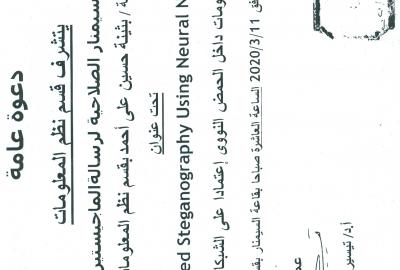 دعوة عامة
يتشرف قسم نظم المعلومات
سيمنار الصلاحية لرسالة الماجيستير
/ بثينة حسين على أحمد بقسم نظم المعلومات
تحت عنوان
ed Steganography Using Neural N
ومات داخل الحمض النووى إعتمادا على الشبكا
فق 2020/3/11 الساعة العاشرة صباحا بقاعة السيمنار بقس
أ.د/ تيسير